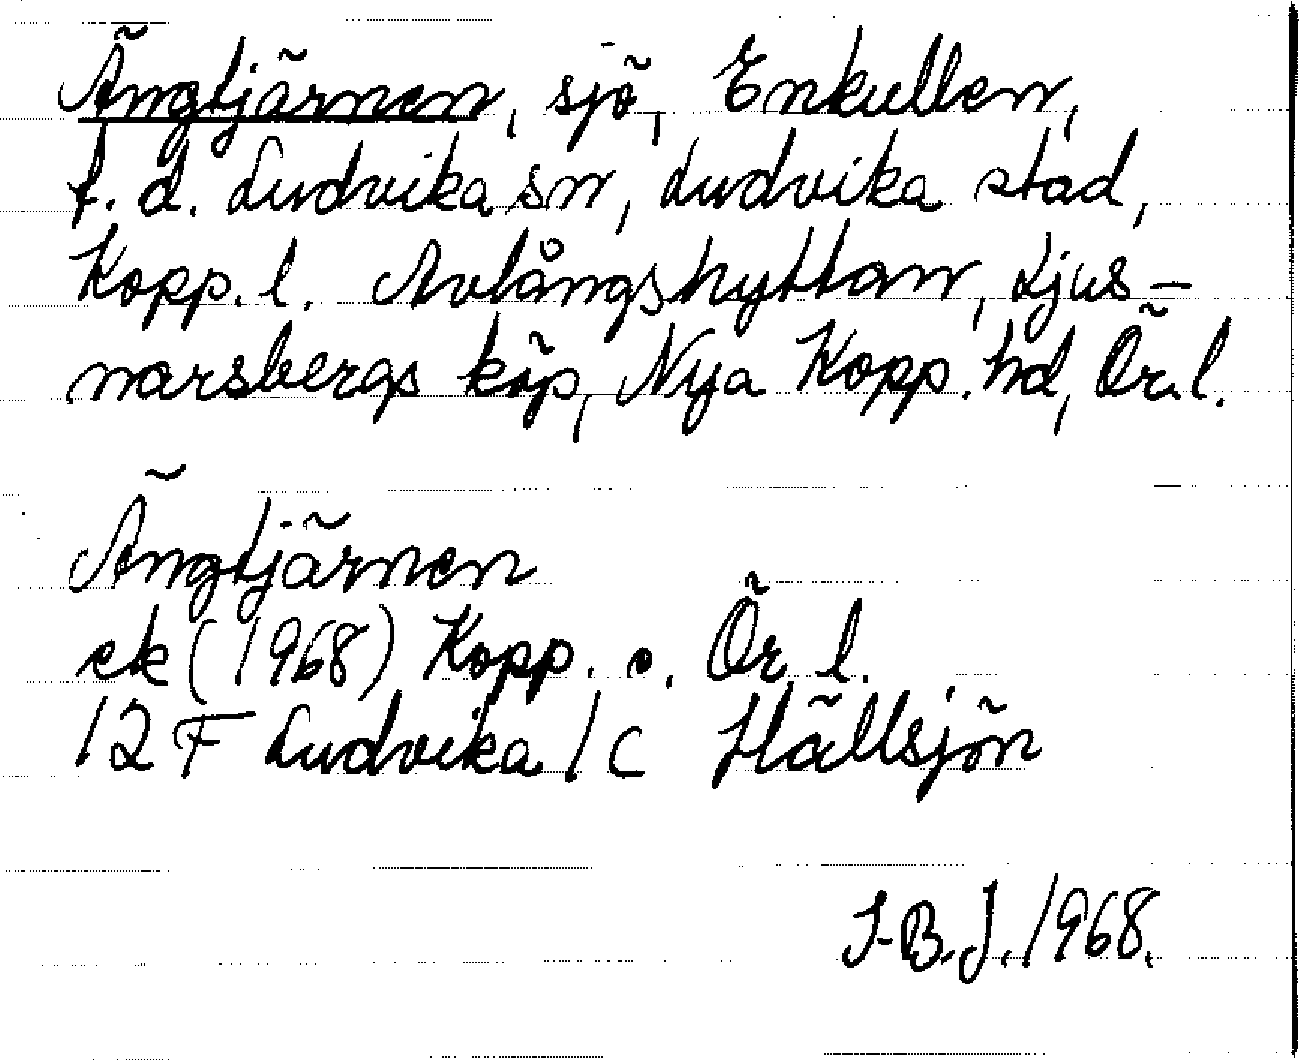 Ängtjärnen, sjö, Enkullen,
f. d. Ludvika sn, Ludvika stad,
Kopp. l. Avlångshyttan, Ljus-
narsbergs köp, Nya Kopp. hd, Ör. l.
Ängtjärnen
ek (1968) Kopp. o. Ör. l.
12 F Ludvika 1 c Hällsjön
I-B. J. 1968.